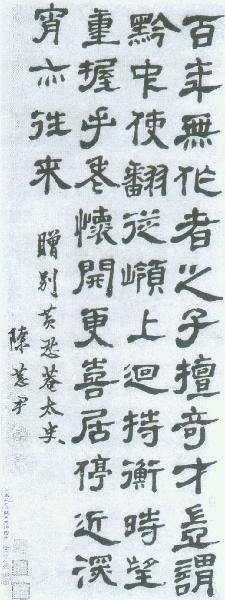 百年無作者之子擅奇才豈謂
黔中使翻從嶺上迴持衡時望
重握手老懷開更喜居停近深
宵亦往来
贈別黄忍菴太史
陳恭尹